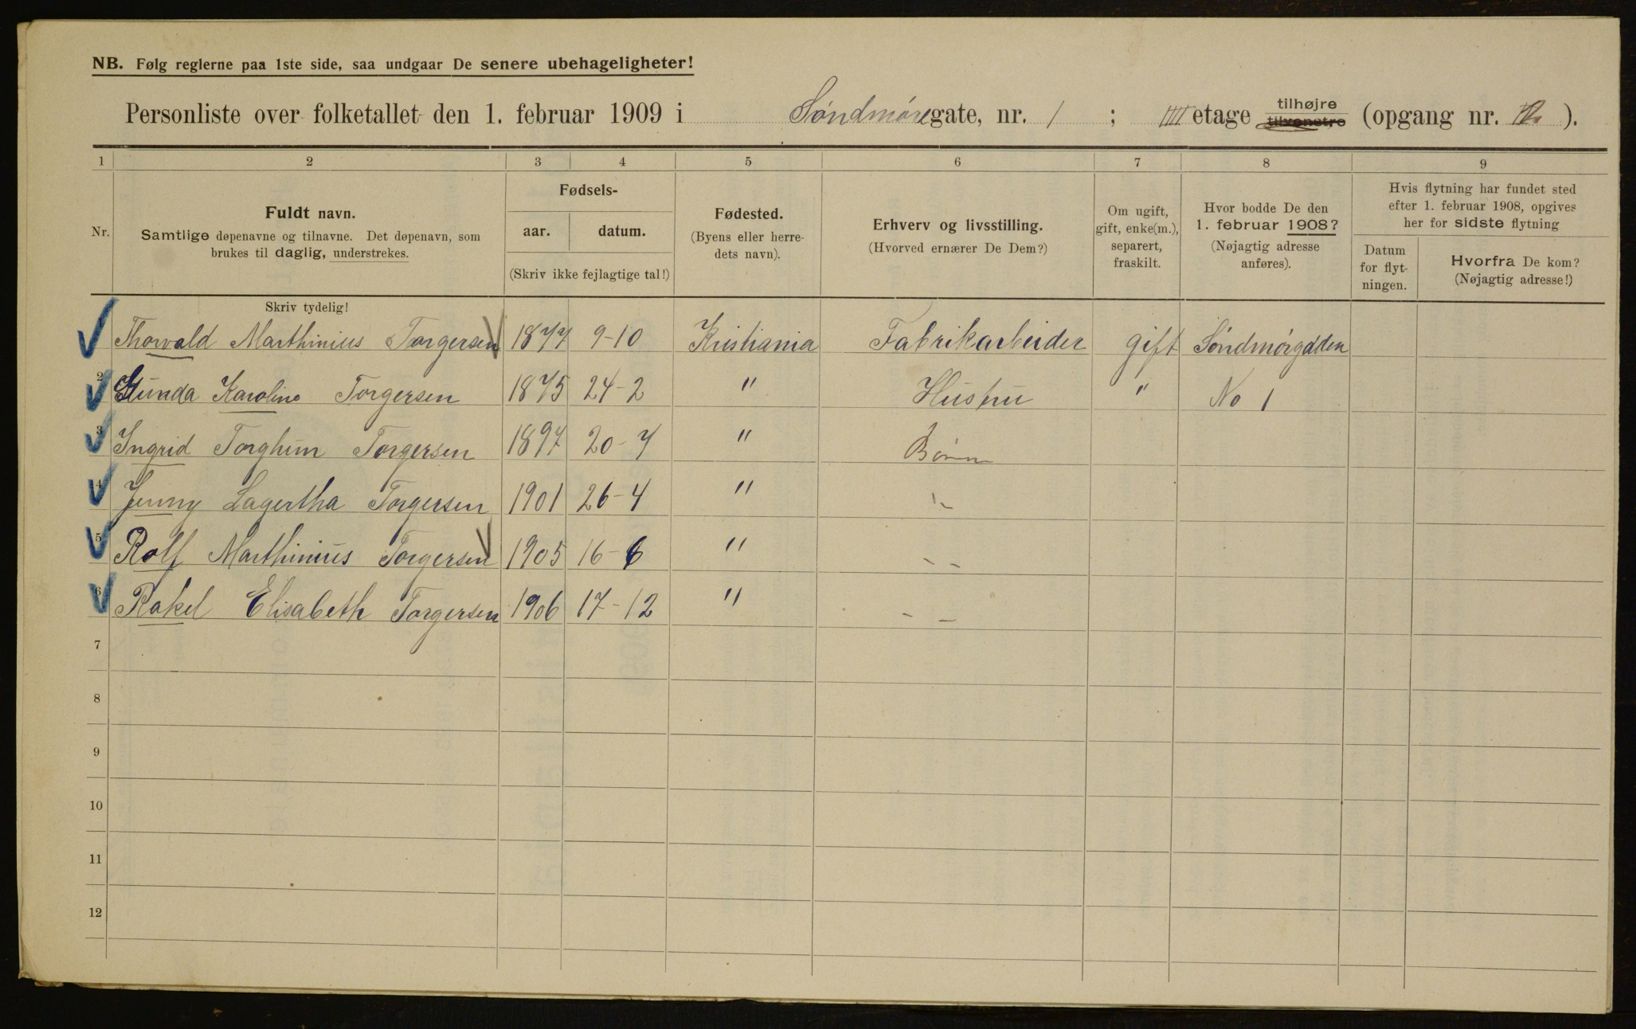 NB. Følg reglerne paa 1ste side, saa undgaar De senere ubehageligheter!
Personliste over folketallet den 1. februar 1909 i Søndmøregate, nr. 1 ; IIII etage tilhøjre tilvenstre (opgang nr. ).
1 2 3 4 5 6 7 8 9
Nr.
Fuldt navn.
Samtlige døpenavne og tilnavne. Det døpenavn, som
brukes til daglig, understrekes.
Fødsels-
aar. datum.
(Skriv ikke fejlagtige tal!)
Fødested.
(Byens eller herre-
dets navn).
Erhverv og livsstilling.
(Hvorved ernærer De Dem?)
Om ugift,
gift, enke(m.),
separert,
fraskilt.
Hvor bodde De den
1. februar 1908?
(Nøjagtig adresse
anføres).
Hvis flytning har fundet sted
efter 1. februar 1908, opgives
her for sidste flytning
Datum
for flyt-
ningen.
Hvorfra De kom?
(Nøjagtig adresse!)
Skriv tydelig!
Thorvald Marthinius Torgersen 1877 9-10 Kristiania Fabrikarbeider gift Søndmørgadden
2 Gunda Karoline Torgersen 1875 24-2 " Hustru " No 1
3 Ingrid Torghun Torgersen 1897 20-7 " Børn
4 Jenny Lagertha Torgersen 1901 26-4 " "-
5 Rolf Marthinius Torgersen 1905 16-6 " - -
6 Rakel Elisabeth Torgersen 1906 17-12 " - -
7
8
9
10
11
12